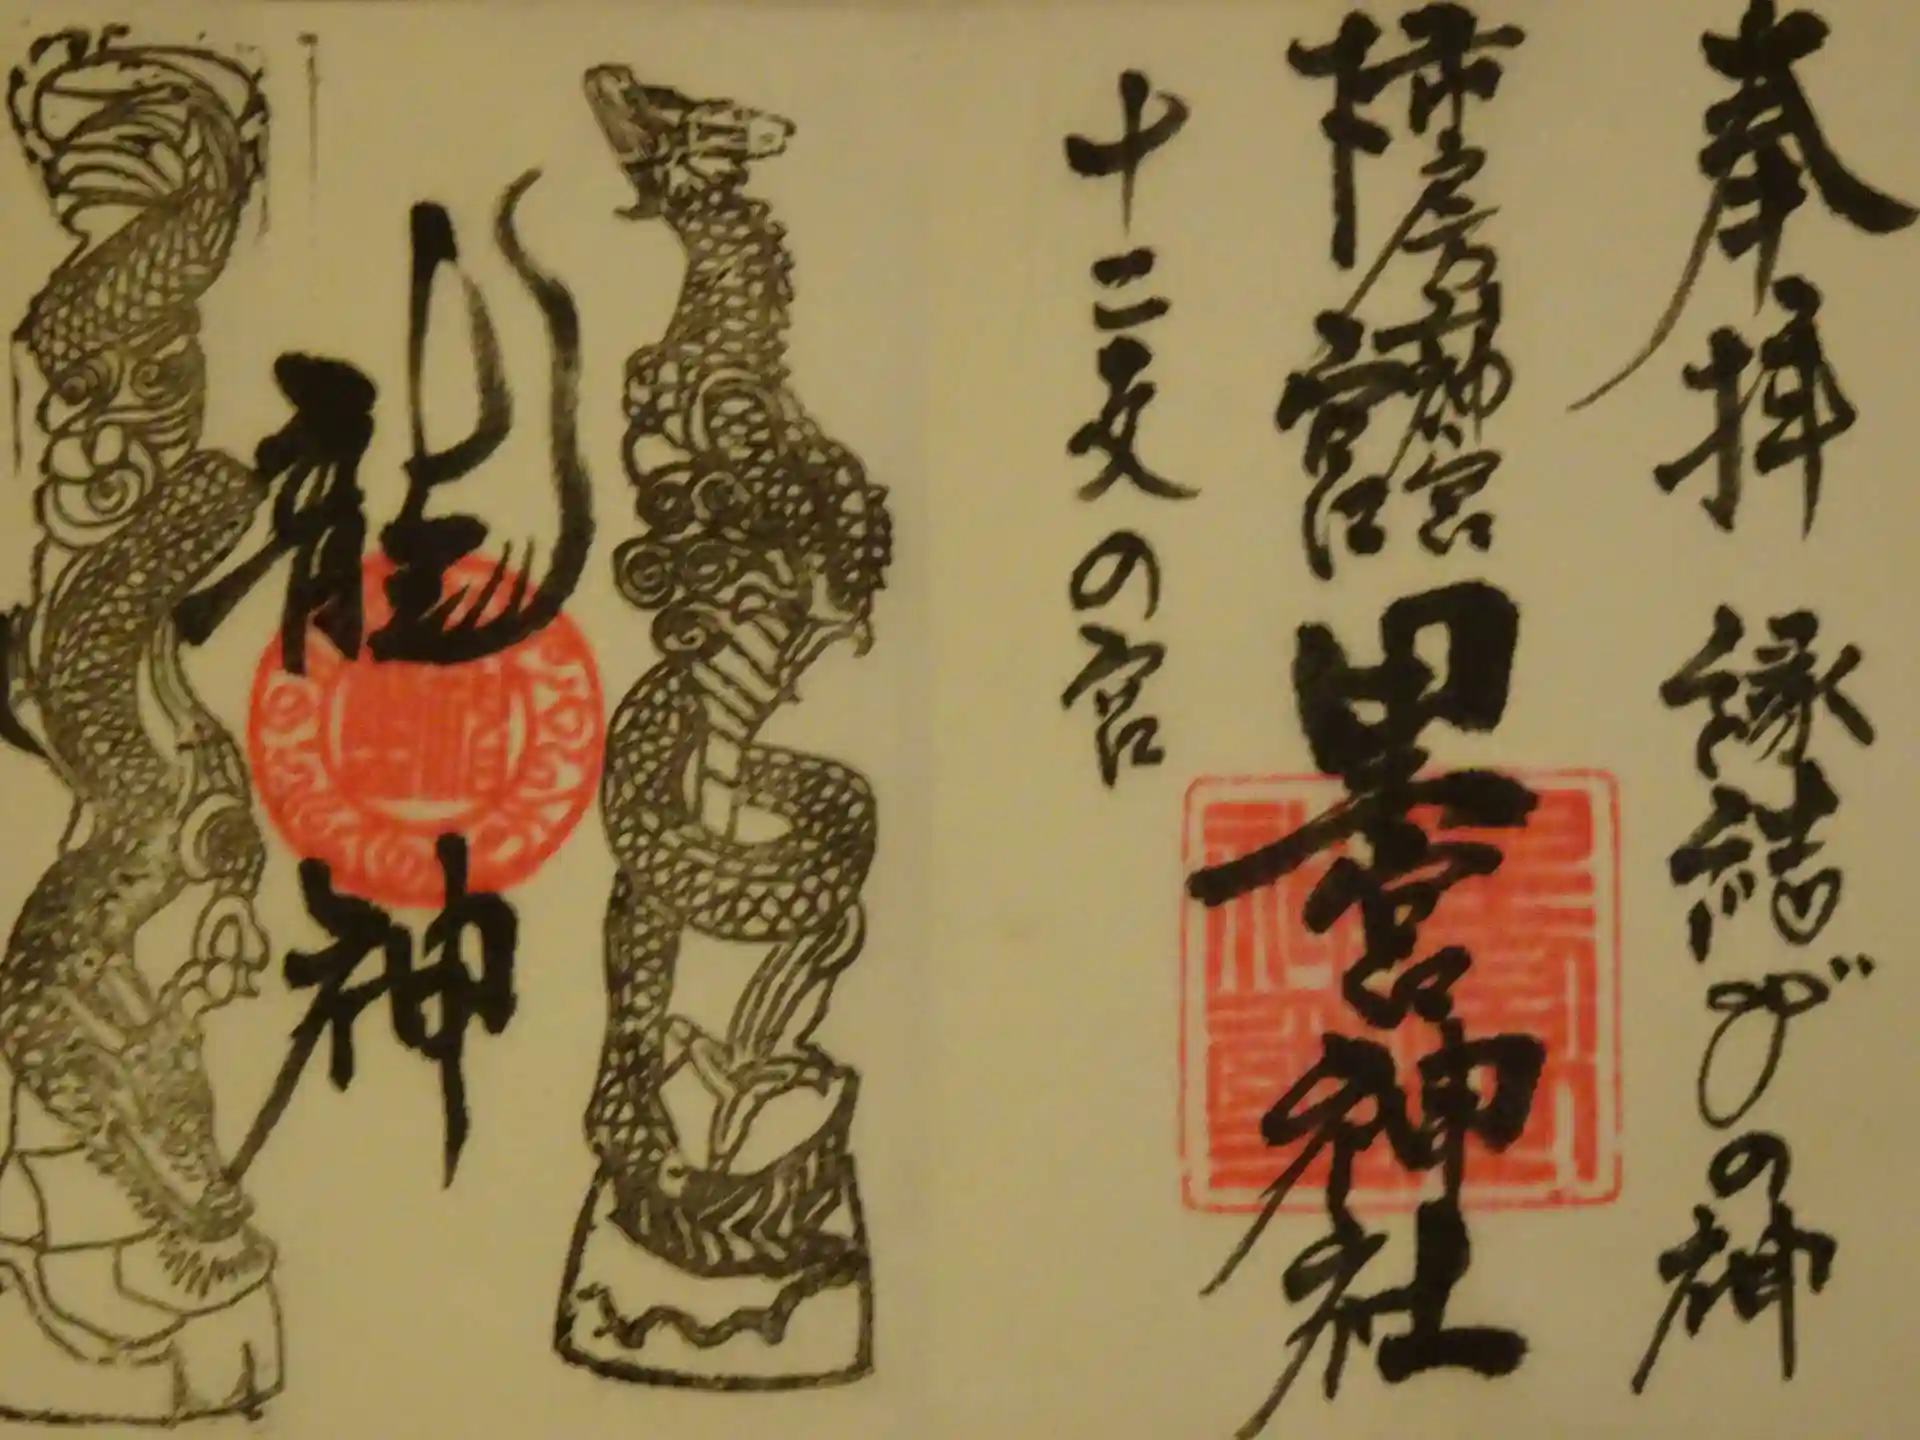 奉拝 縁結びの神
里宮神社
十二支の宮
龍神